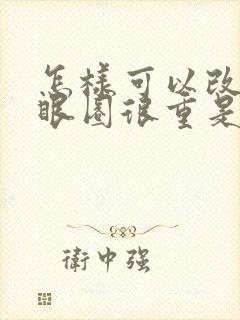 怎樣可以改
眼圈很重是
衛中強